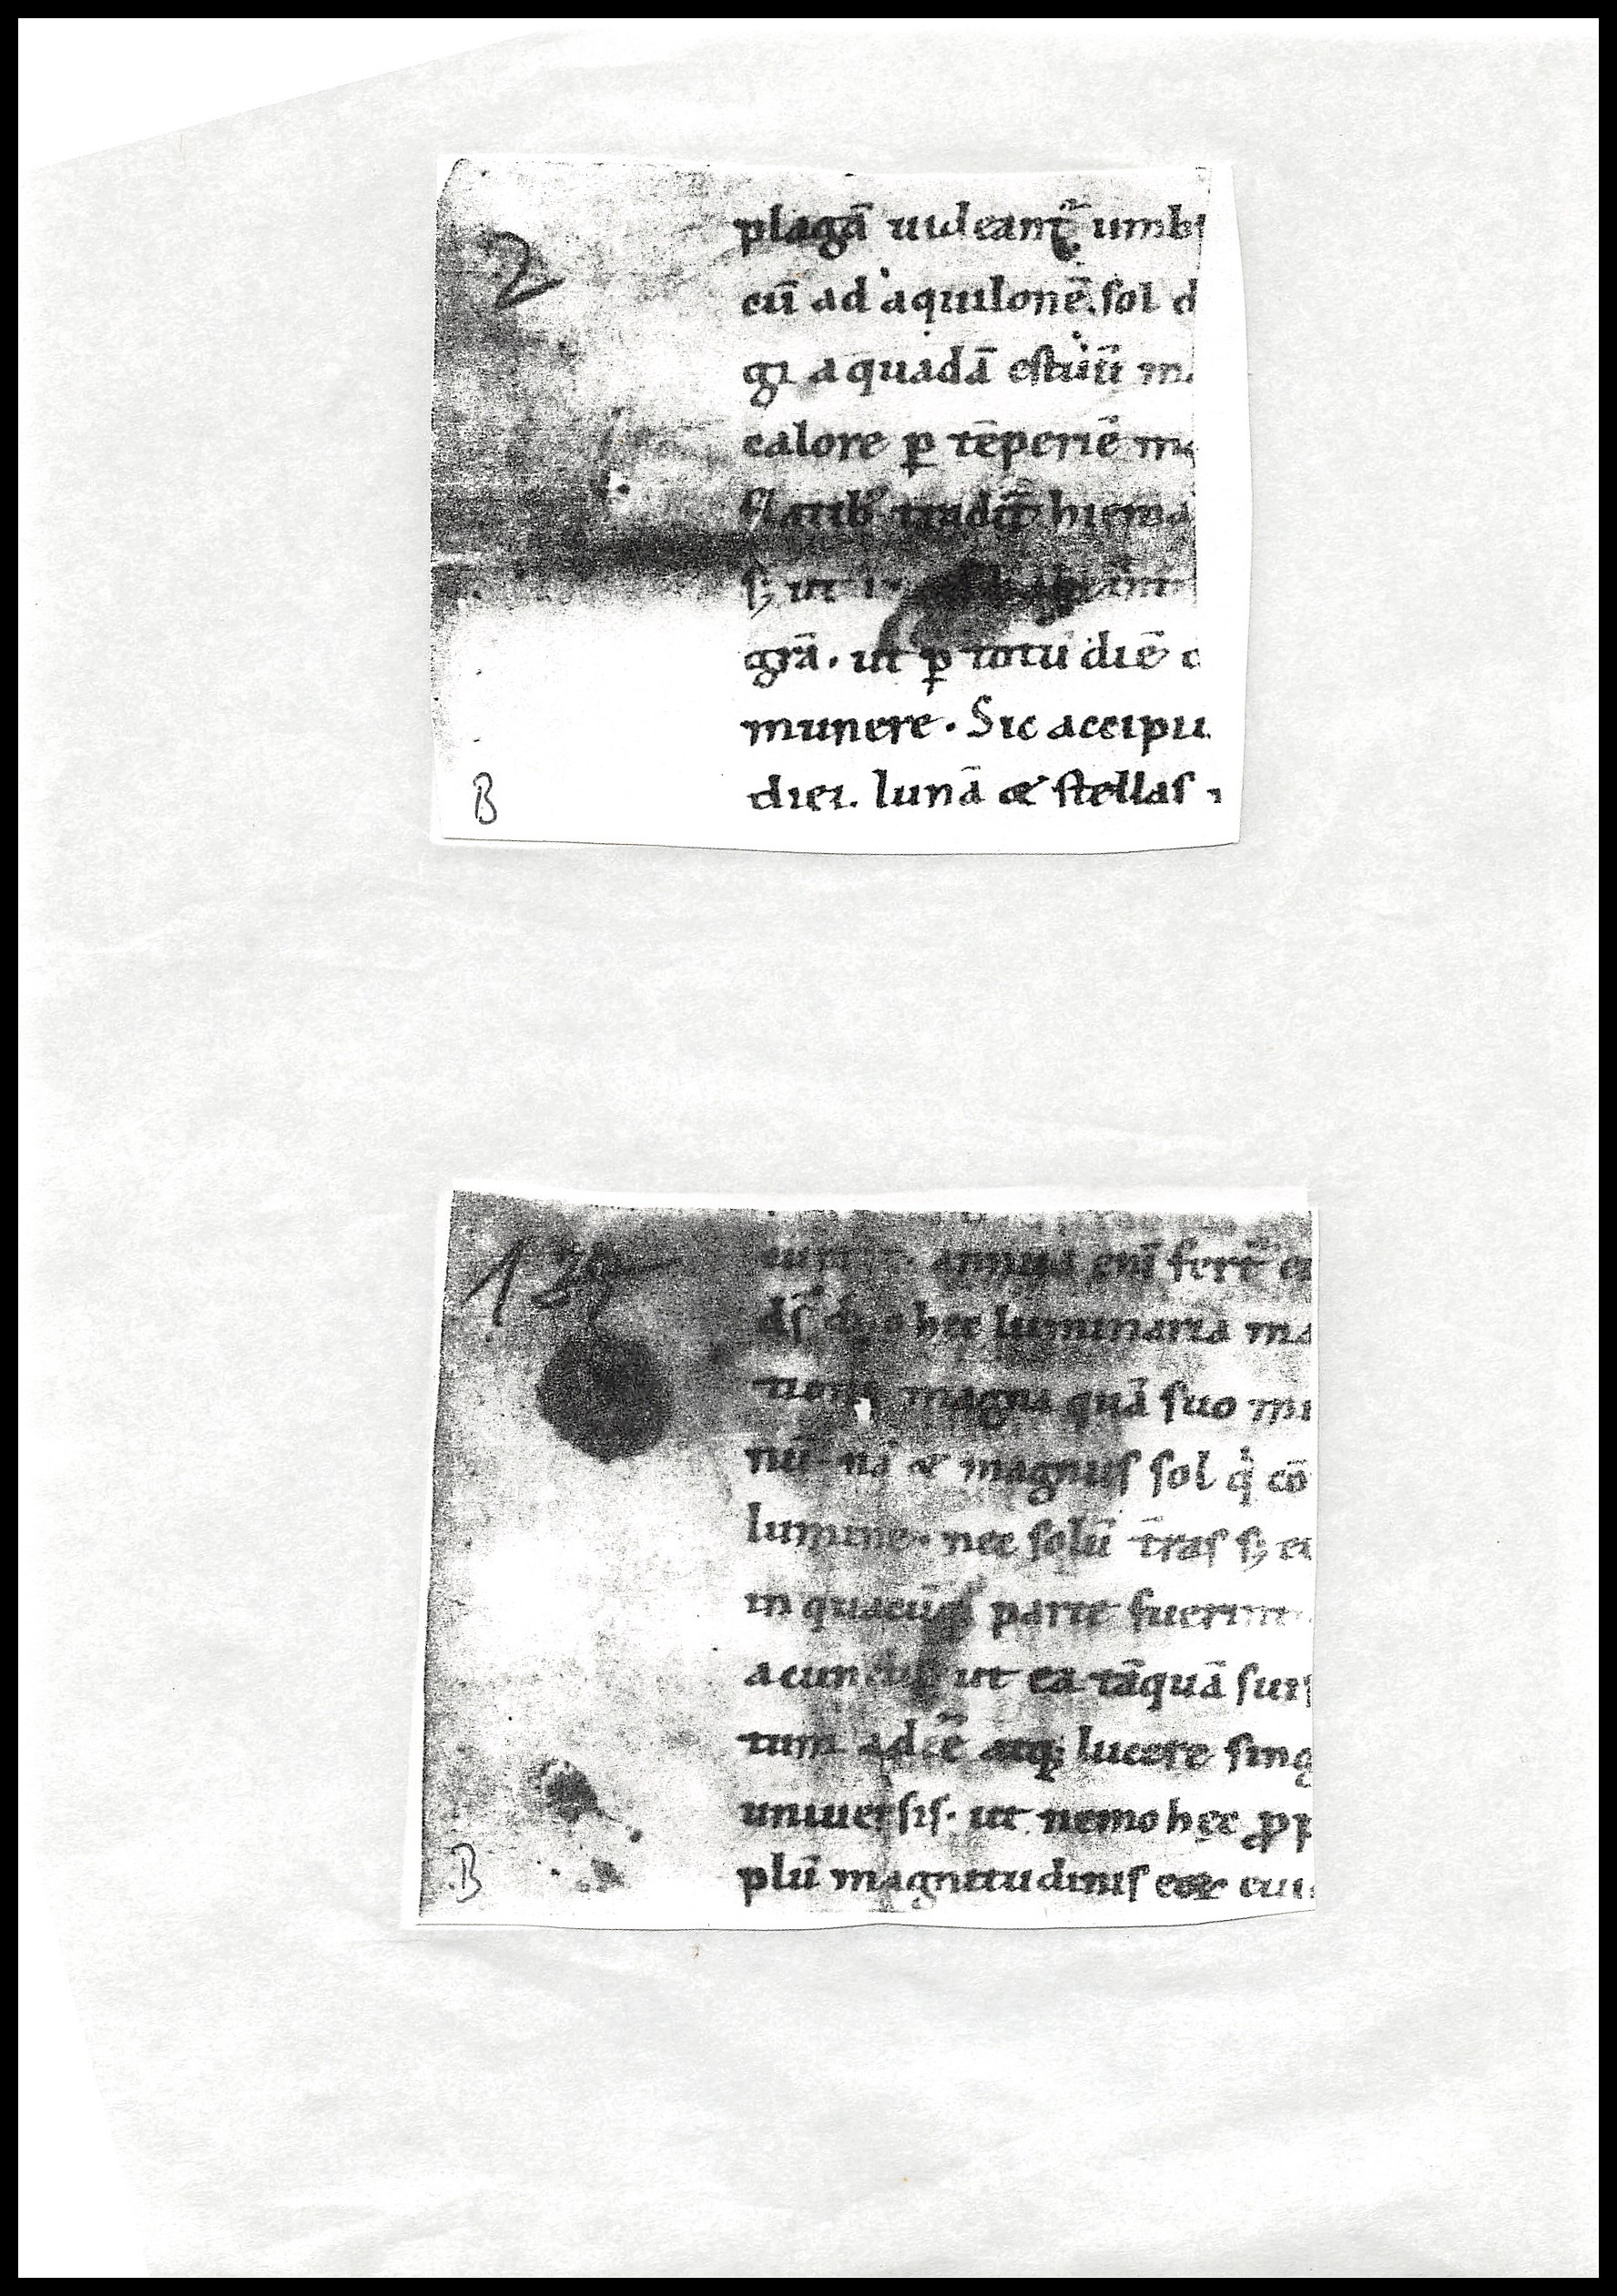 2
plagā uideant᷑ umbr
cū ad aquilonē. sol d
gi a quadā estiuū m
calore ꝑ tēperiē m
flatib᷒ tradit᷑ hiema
sꝫ ut
grā. ut ꝑ totū diē c
munere. Sic accipiu
diei. lunā & stellas
B
1
annua eni᷒ fert᷑
ds̄ duo hec luminaria ma
tione magna quā suo mu
nū na & magnus sol q̇ cō
lumine. nec solū t̄ras sꝫ
in quacūqꝫ parte fuerint
a cunctis ut ea tāquā suis
tum adeē atqꝫ lucere sing
uniuersis. ut nemo hec ꝓp
plū magnitudinis eoꝝ eui
B